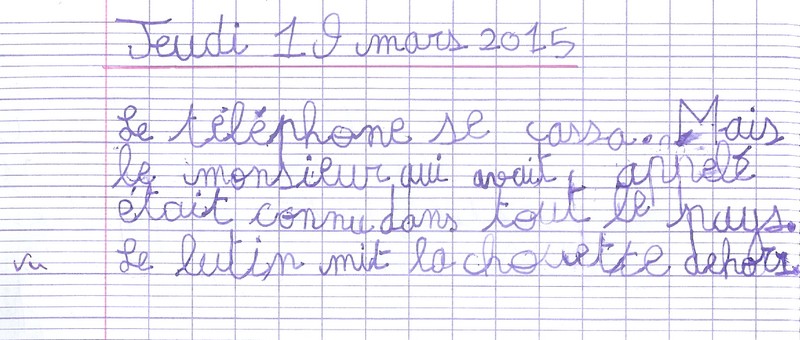 Jeudi 19 mars 2015
Le téléphone se cassa. Mais
le monsieur qui avait appelé
était connu dans tout le pays.
vu Le lutin mit la chouette dehors.